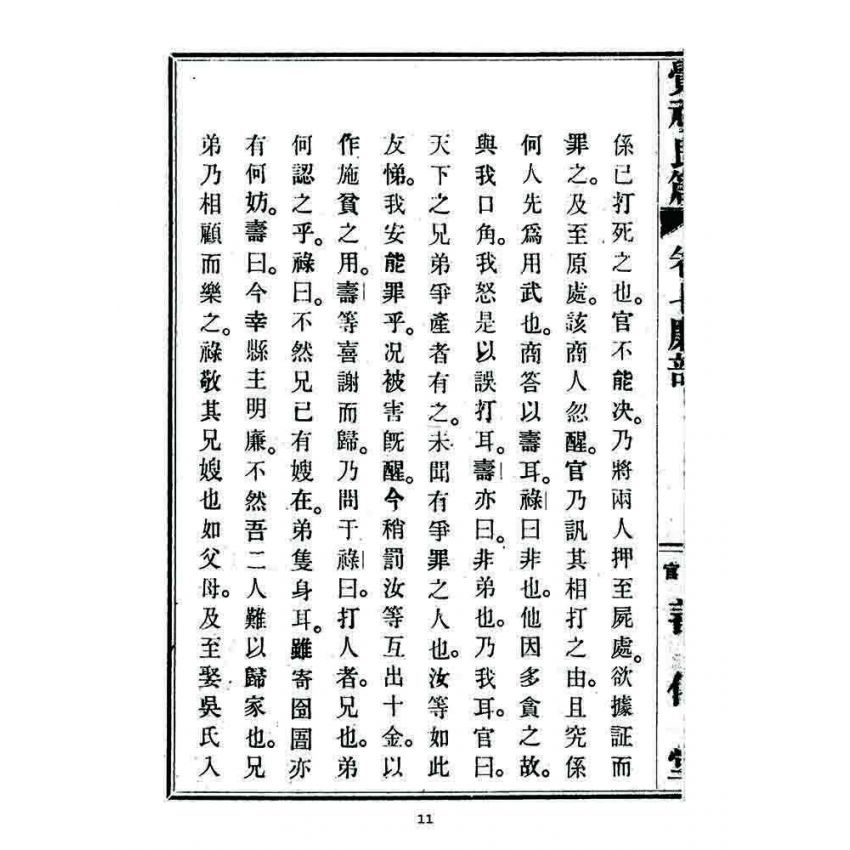 係已打死之也。官不能决。乃將兩人押至屍處。欲據証而
罪之。及至原處。該商人忽醒。官乃訊其相打之由。且究係
何人先爲用武也。商答以壽耳。祿曰非也。他因多貪之故。
與我口角。我怒是以誤打耳。壽亦曰。非弟也。乃我耳。官曰。
天下之兄弟爭產者有之。未聞有爭罪之人也。汝等如此
友悌。我安能罪乎。况被害旣醒。今稍罰汝等互出十金。以
作施貧之用。壽等喜謝而歸。乃問于祿曰。打人者。兄也。弟
何認之乎。祿曰。不然兄已有嫂在。弟隻身耳。雖寄囹圄亦
有何妨。壽曰。今幸縣主明廉。不然吾二人難以歸家也。兄
弟乃相顧而樂之。祿敬其兄嫂也如父母。及至娶吳氏入
11